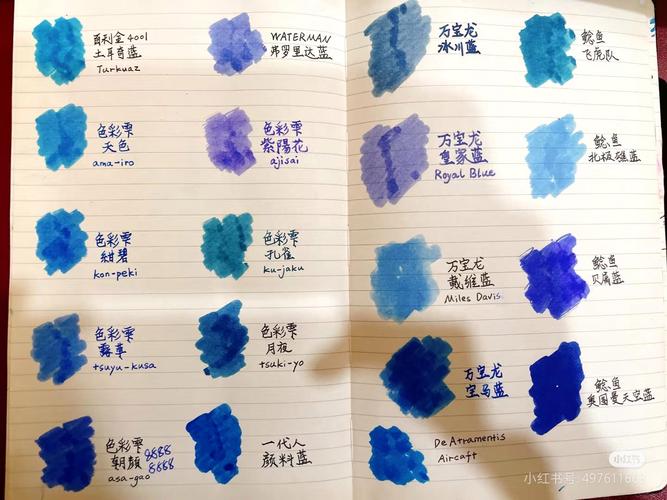 百利金4001
土耳奇蓝
Turkuaz
WATERMAN
弗罗里达蓝
色彩雫
天色
ama-iro
色彩雫
紫陽花
ajisai
色彩雫
紺碧
kon-peki
色彩雫
孔雀
ku-jaku
色彩雫
露草
tsuyu-kusa
色彩雫
月夜
tsuki-yo
色彩雫
朝顔 8888
8888
asa-gao
一代人
颜料蓝
万宝龙
冰川蓝
鲶鱼
飞虎队
万宝龙
皇家蓝
Royal Blue
鲶鱼
北极礁蓝
万宝龙
戴维蓝
Miles Davis
鲶鱼
贝盾蓝
万宝龙
宝马蓝
鲶鱼
美国曼天宝蓝
De Atramentis
Aircaft
小红书
小红书号